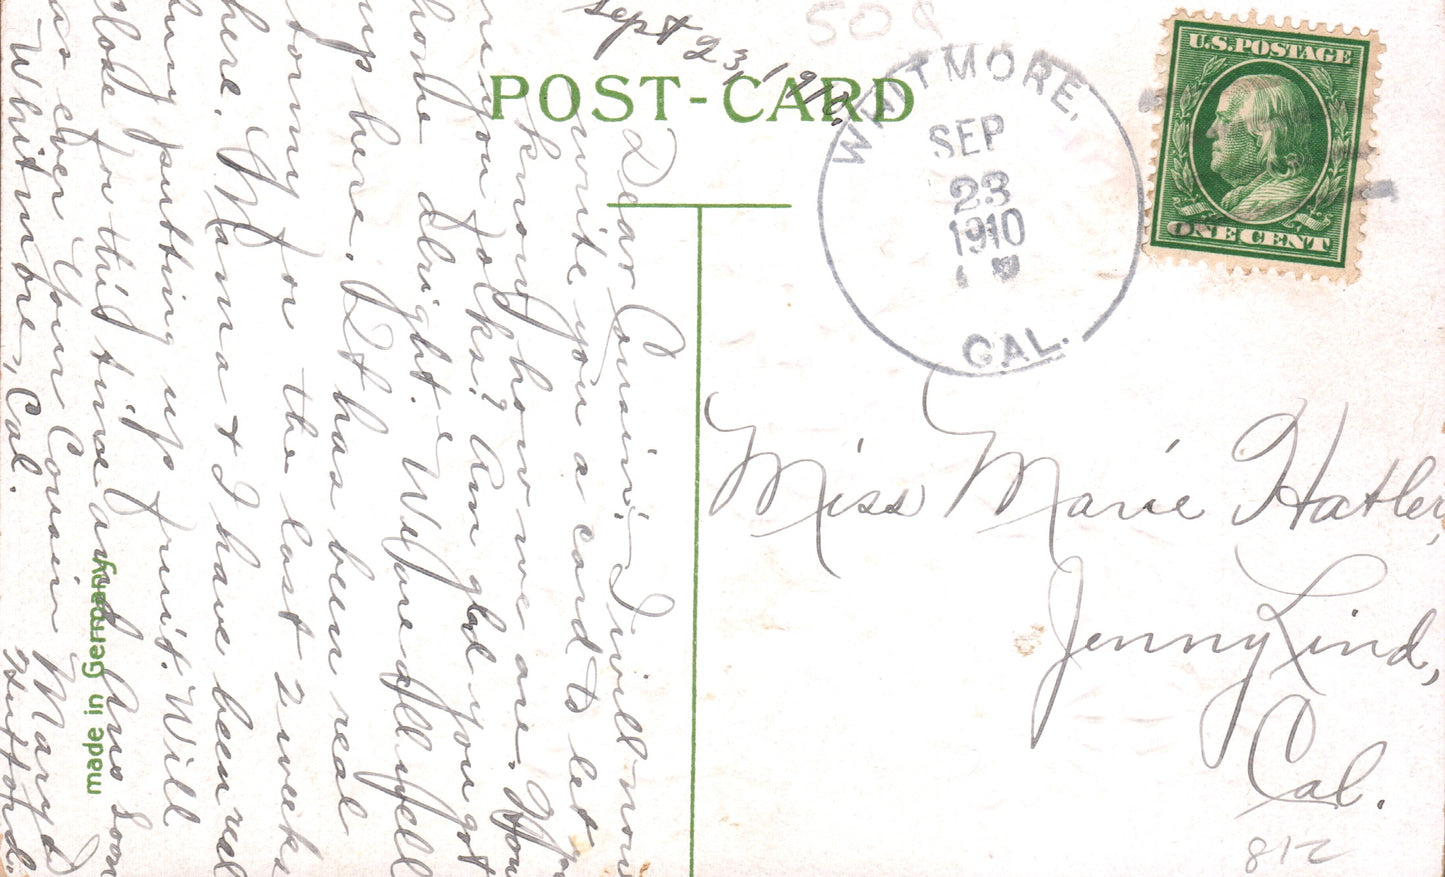 50¢
Sept 23, 1910.
POST-CARD
WHITMORE,
SEP
23
1910
CAL.
U.S. POSTAGE
ONE CENT
Dear Cousin:- I will now
write you a card to let you
know how we are. How
are you folks? Am glad you got
home alright. We are all well
up here. It has been real
stormy for the last 2 weeks
here. Mama & I have been real
busy putting up fruit. Will
close for this time and Ans soon
as ever Your Cousin Mary J
Whitmore, Cal. Hufford
made in Germany
Miss Marie Hatler,
Jenny Lind,
Cal.
812